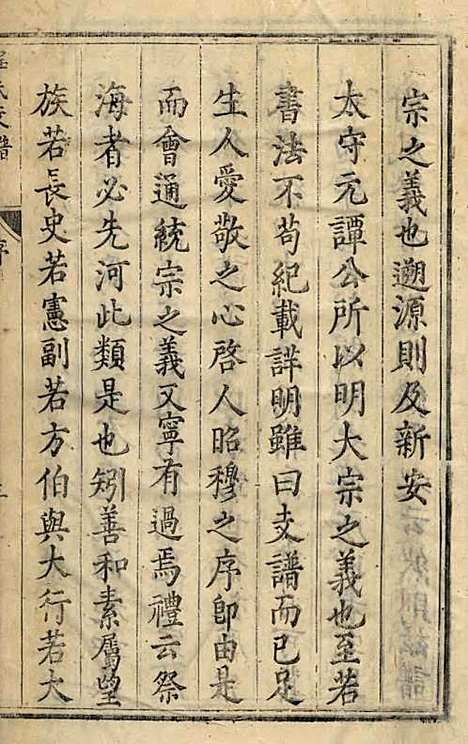 宗之義也遡源則及新安
太守元譚公所以明大宗之義也至若
書法不苟紀載詳明雖曰支譜而已足
生人愛敬之心啓人昭穆之序卽由是
而會通統宗之義又寧有過焉禮云祭
海者必先河此類是也矧善和素屬望
族若長史若憲副若方伯與大行若大
氏支譜
序